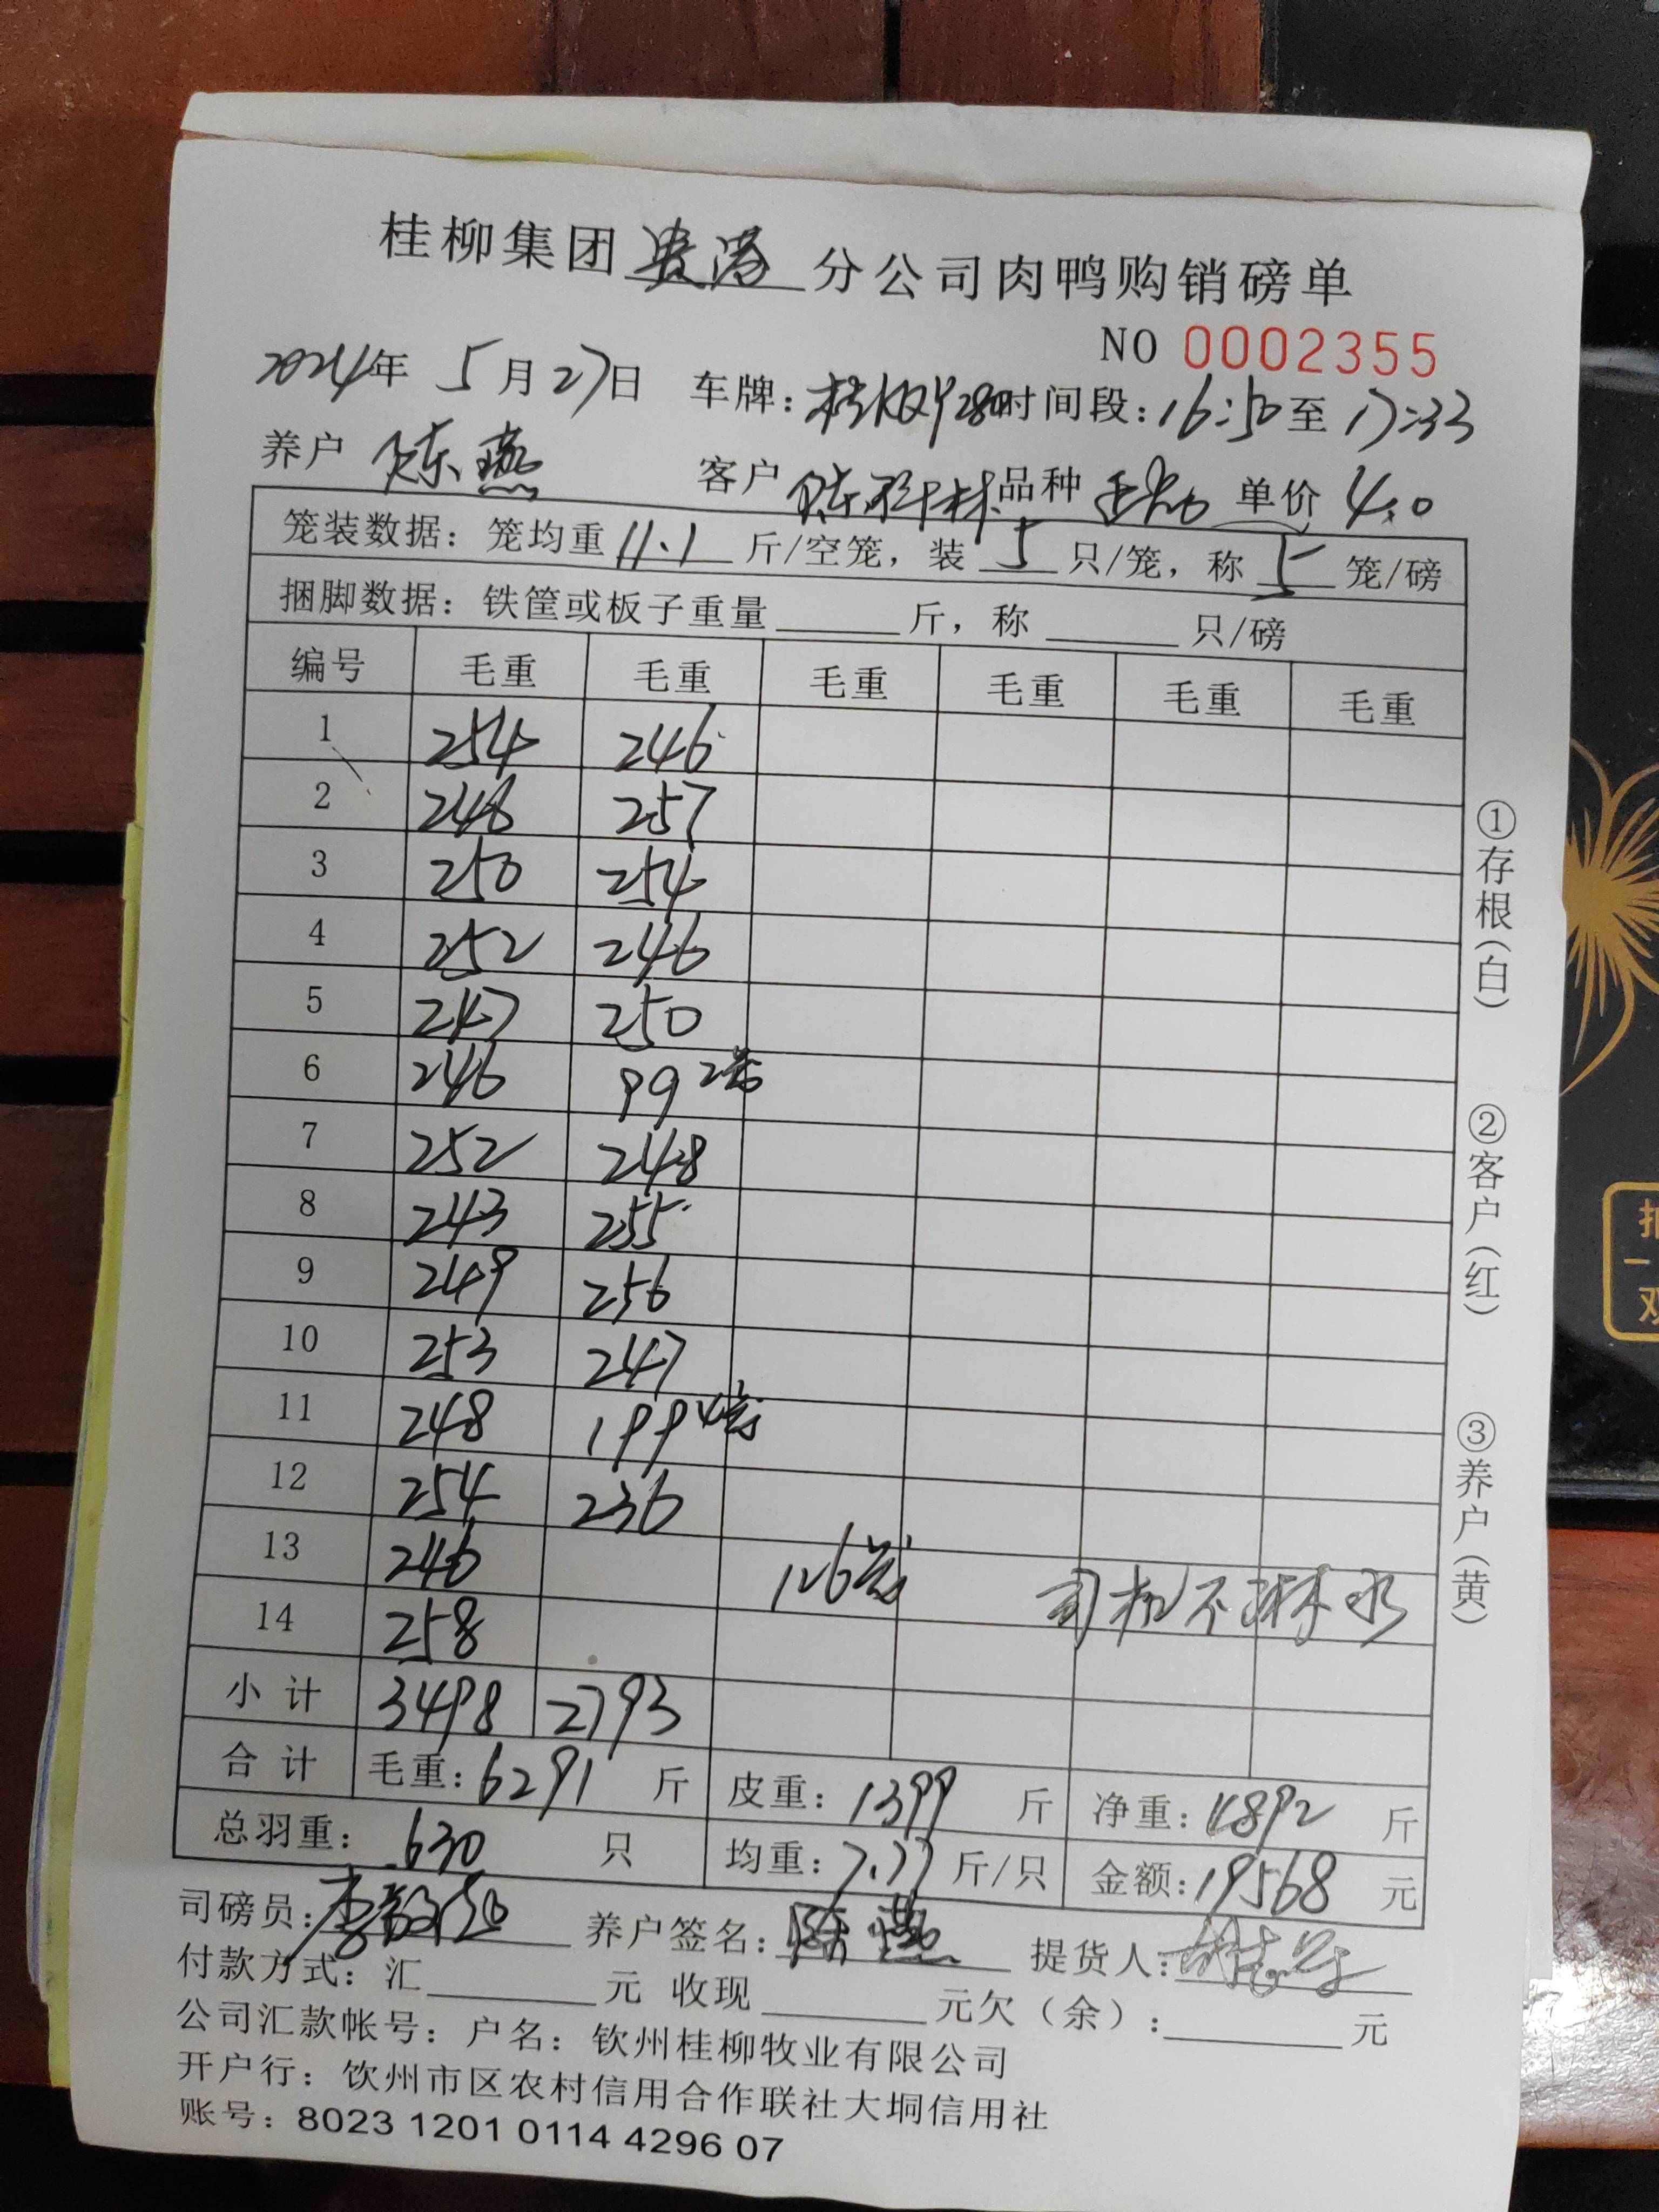 桂柳集团贵港分公司肉鸭购销磅单
NO 0002355
2024年 5月27日 车牌: 时间段:16:50至17:33
养户 陈燕 客户 陈科林 品种 毛鸭 单价 4.0
笼装数据: 笼均重 11.1 斤/空笼, 装 5 只/笼, 称 5 笼/磅
捆脚数据: 铁筐或板子重量 斤, 称 只/磅
编号 毛重 毛重 毛重 毛重 毛重 毛重
1 254 246
2 248 257
3 250 254
4 252 246
5 247 250
6 246 99 2笼
7 252 248
8 243 255
9 249 256
10 253 247
11 248 199 4笼
12 254 236
13 246 126笼 司机不淋水
14 258
小计 3498 2793
合计 毛重: 6291 斤 皮重: 1399 斤 净重: 4892 斤
总羽重: 630 只 均重: 7.77 斤/只 金额: 19568 元
司磅员: 养户签名: 陈燕 提货人:
付款方式: 汇 元 收现 元欠(余): 元
公司汇款帐号: 户名: 钦州桂柳牧业有限公司
开户行: 钦州市区农村信用合作联社大垌信用社
账号: 8023 1201 0114 4296 07
①存根(白)
②客户(红)
③养户(黄)